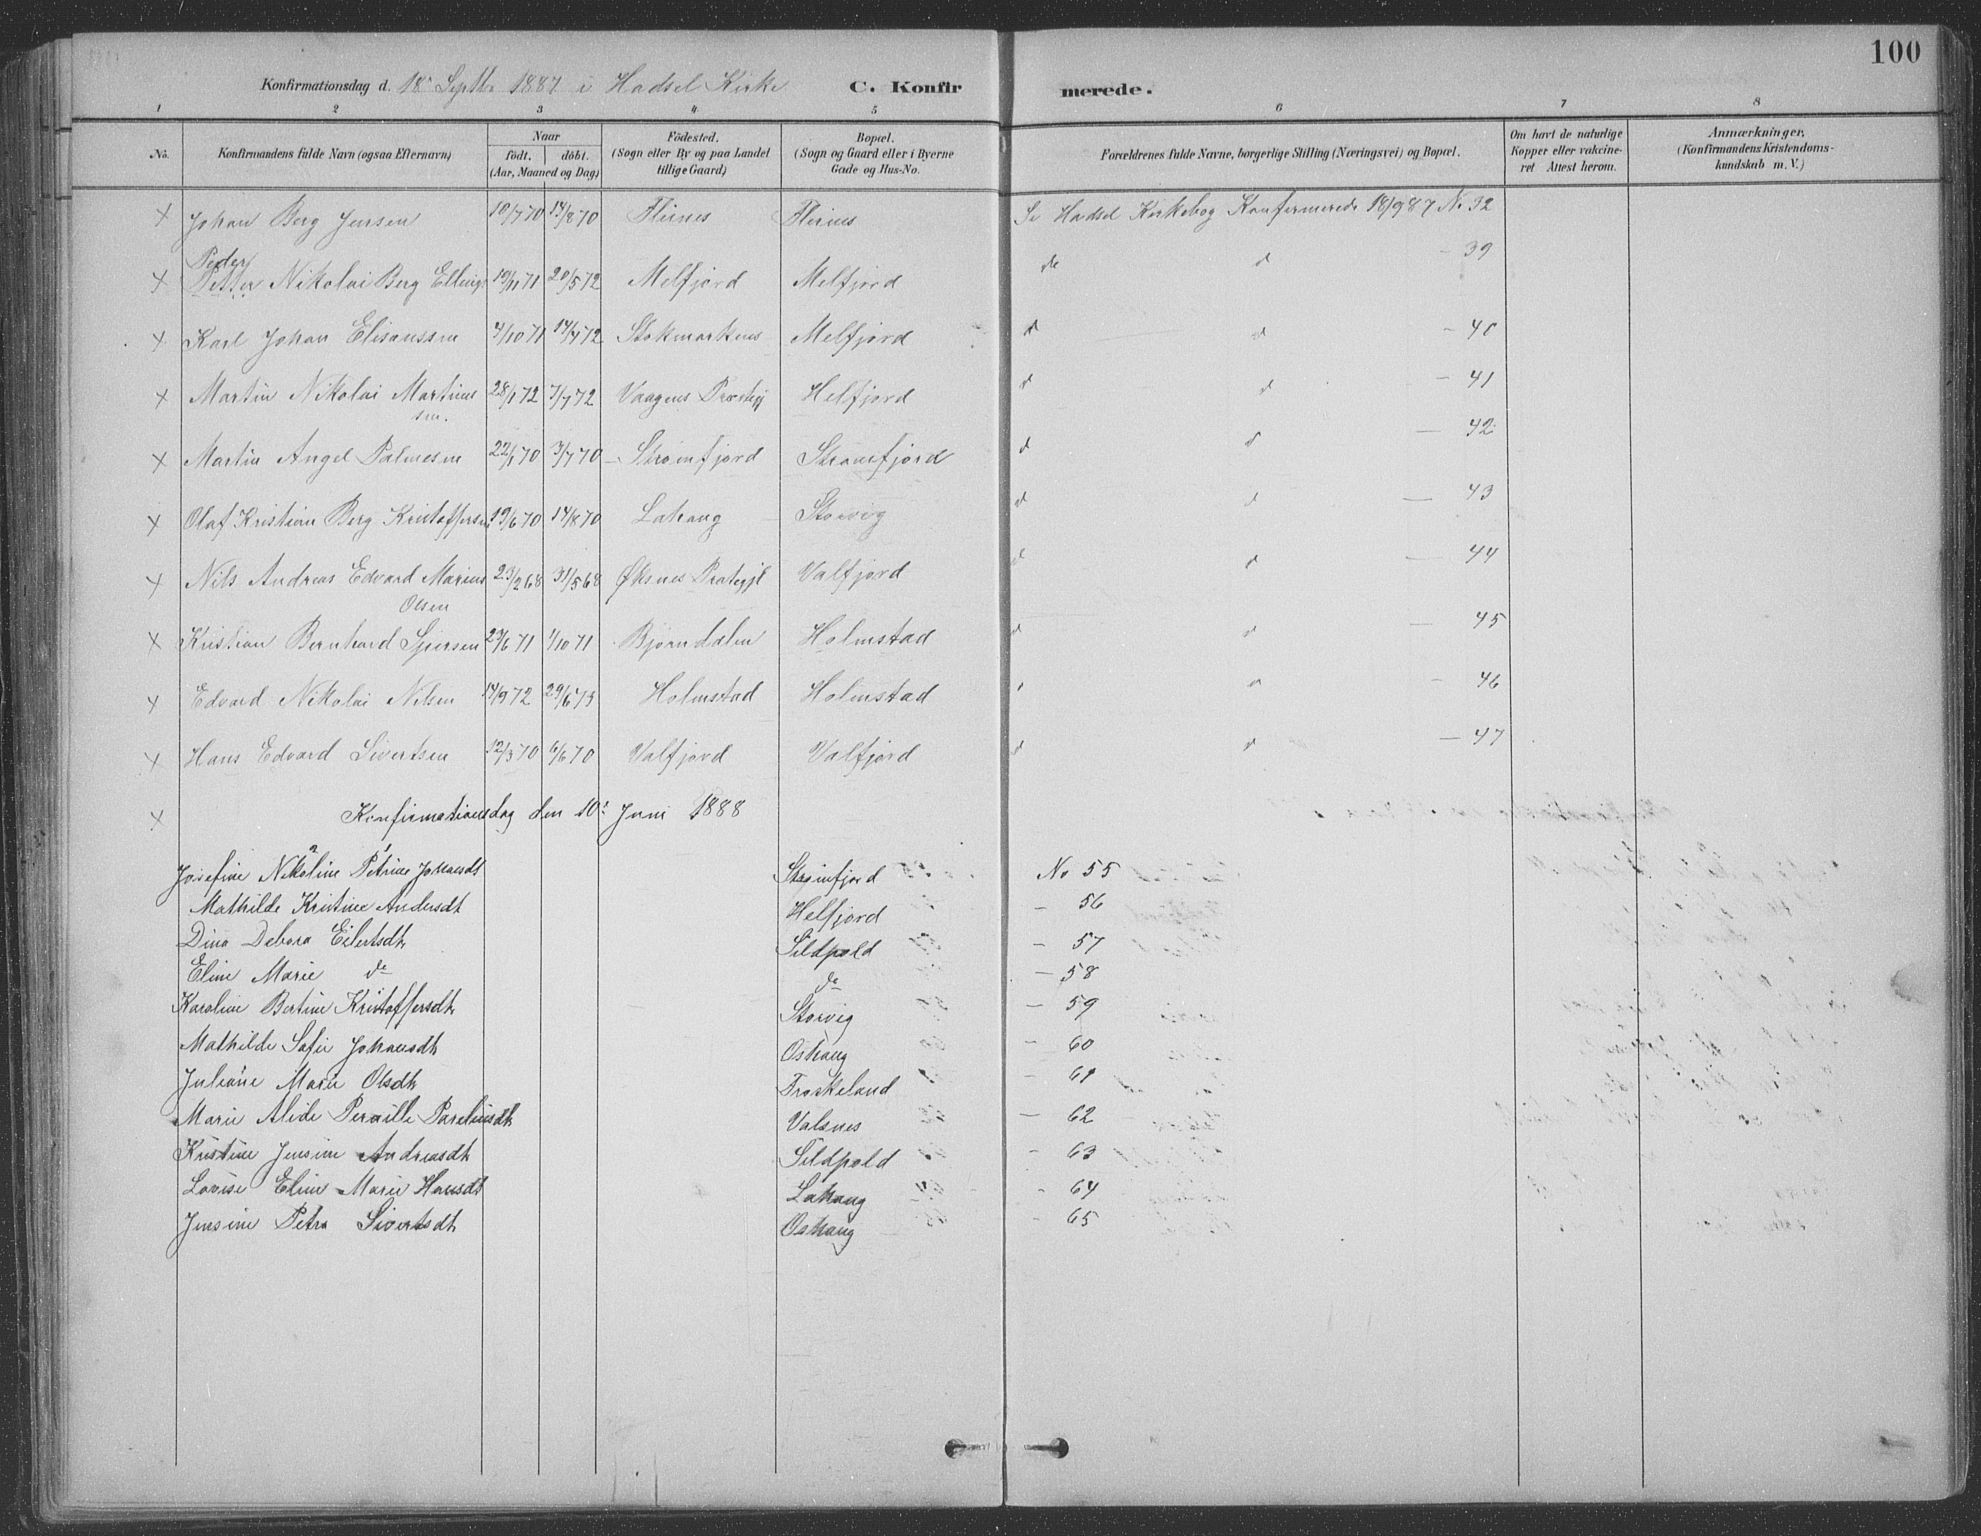 100
Konfirmationsdag d. 18 Septbr 1887 i Hadsel Kirke C. Konfirmerede.
1 2 3 4 5 6 7 8
No. Konfirmandens fulde Navn (ogsaa Efternavn) Naar født, døbt. (Aar, Maaned og Dag) Fødested. (Sogn eller By og paa Landet tillige Gaard) Bopæl. (Sogn og Gaard eller i Byerne Gade og Hus-No. Forældrenes fulde Navne, borgerlige Stilling (Næringsvei) og Bopæl. Om havt de naturlige Kopper eller vakcineret Attest herom. Anmærkninger. (Konfirmandens Kristendomskundskab m. V.)
x Johan Berg Jensen 10/7 70 14/8 70 Se Hadsel Kirkebog Konfermerede 18/9 87 No 32
Peder
x Petter Nikolai Berg Ellings 19/11 71 20/5 72 Melfjord Melfjord do d - 39
x Karl Johan Elisaussen 4/10 71 14/7 72 Stokmarknes Melfjord d d - 40
x Martin Nikolai Martinus 28/1 72 7/7 72 Vaagens Præstegj Helfjord d d - 41
sen.
x Martin Angel Palmesen 22/1 70 3/7 70 Strømfjord Strømfjord d d - 42
x Olaf Kristian Berg Kristoffersen 19/6 70 14/8 70 Lahaug Storvig d d - 43
x Nils Andreas Edvard Marius 23/2 68 31/5 68 Øksnes Valfjord d d - 44
Olsen
x Kristian Bernhard 23/6 71 1/10 71 Bjørndalen Holmstad d d - 45
x Edvard Nikolai Nilsen 14/9 72 29/6 73 Holmstad Holmstad d - 46
x Hans Edvard Sivertsen 12/3 70 6/6 70 Valfjord Valfjord d d - 47
x Konfirmationsdag den 10: Juni 1888
Josefine Nikoline Petrine Johansdt Strømfjord No 55
Mathilde Kristine Andersdt Helfjord - 56
Dina Debora Eilertsdt Sildpold - 57
Eline Marie do do - 58
Karoline Bertine Kristoffersdt Storvig - 59
Mathilde Sofie Johansdt Oshaug - 60
Juliane Marie Olsdt Froskeland - 61
Marie Alide Pernille Pareliusdt Valsnes - 62
Kristine Jensine Andreasdt Sildpold - 63
Lovise Eline Marie Hansdt Lahaug - 64
Jensine Petra Sivertsdt Oshaug - 65